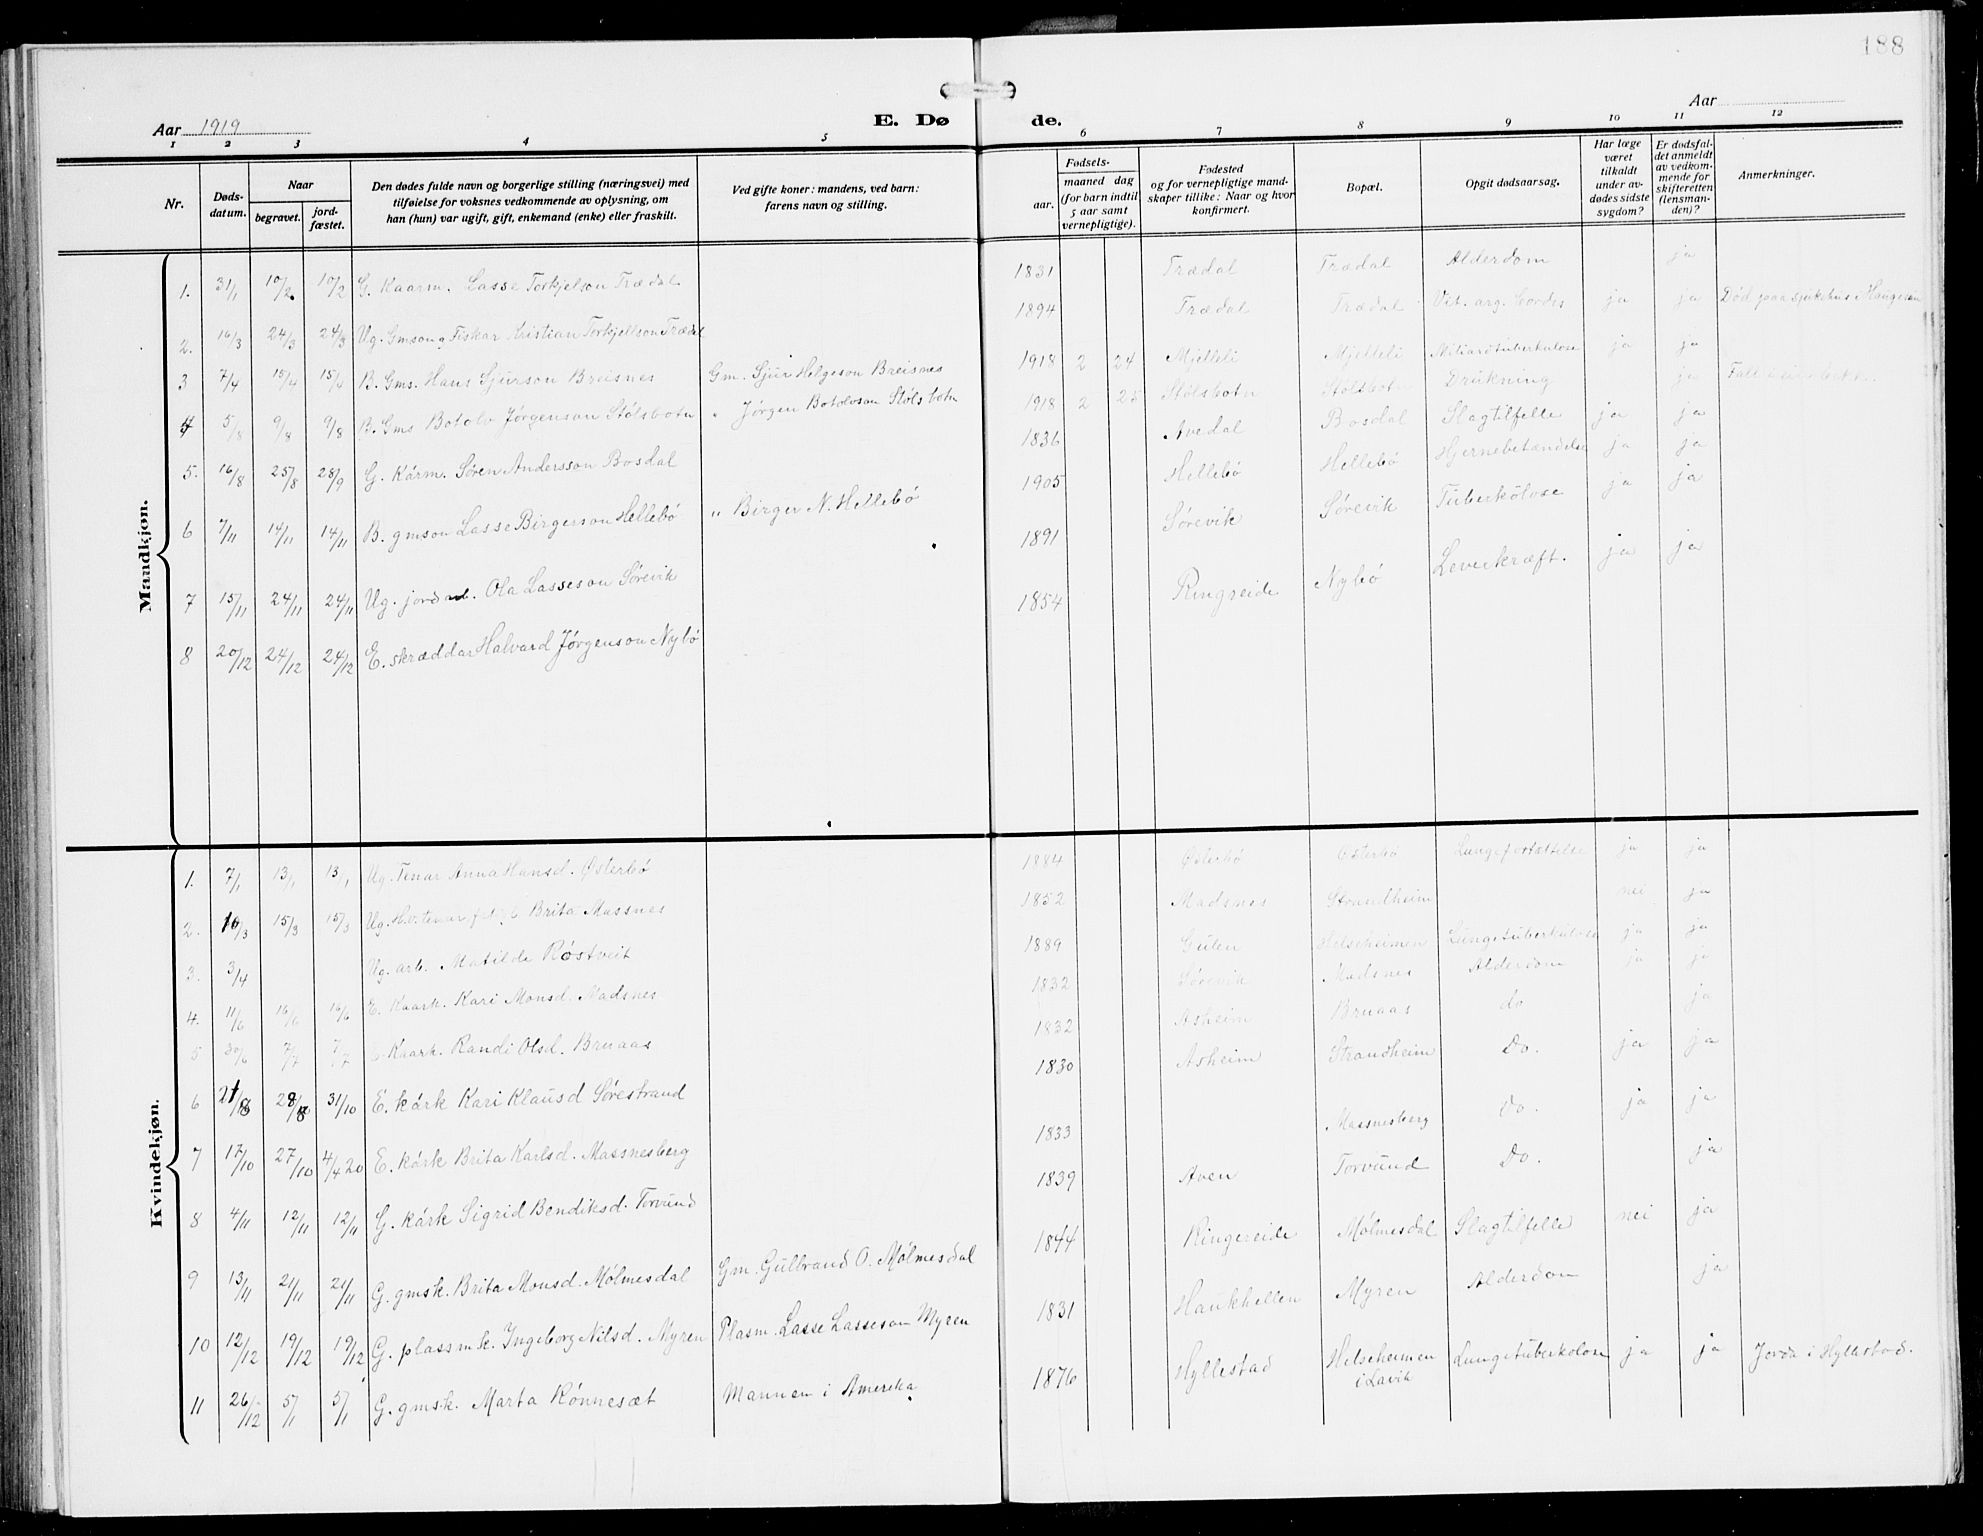 188
Aar 1919
E. Dø
de.
Aar
1 2 3 4 5 6 7 8 9 10 11 12
Nr.
Døds-
datum.
Naar
begravet.
jord-
fæstet.
Den dødes fulde navn og borgerlige stilling (næringsvei) med
tilføielse for voksnes vedkommende av oplysning, om
han (hun) var ugift, gift, enkemand (enke) eller fraskilt.
Ved gifte koner: mandens, ved barn:
farens navn og stilling.
Fødsels-
aar.
maaned dag
(for barn indtil
5 aar samt
vernepligtige).
Fødested
og for vernepligtige mand-
skaper tillike: Naar og hvor
konfirmert.
Bopæl.
Opgit dødsaarsag.
Har læge
været
tilkaldt
under av-
dødes sidste
sygdom?
Er dødsfal-
det anmeldt
av vedkom-
mende for
skifteretten
(lensman-
den)?
Anmerkninger.
Mandkjøn.
1. 31/1 10/2 10/2 G. Kaarm. Lasse Torkjelson Trædal 1831 Trædal Trædal Alderdom ja
2. 16/3 24/3 24/3 Ug. Gmson og Fiskar Kristian Torkjellson Trædal 1894 Trædal Trædal Vit. arg. Cordis ja ja Død paa sjukehus Haugesund
3 7/4 15/4 15/4 B. Gms. Hans Sjurson Breisnes Gm. Sjur Helgeson Breisnes 1918 2 24 Mjelleli Mjelleli Miliærtuberkulose ja ja
4 5/8 9/8 9/8 B. Gms Botolv Jørgenson Stólsbotn " Jørgen Botolvson Stólsbotn 1918 2 25 Stólsbotn Stólsbotn Drukning ja Fall
5. 16/8 25/8 28/9 G. Kárm. Søren Andersson Bosdal 1836 Avedal Bosdal Slagtilfelle ja ja
6 7/11 14/11 14/11 B. gmson Lasse Birgerson Hellebó " Birger N. Hellebó 1905 Hellebó Hellebó Hjernebetændelse ja ja
7 15/11 24/11 24/11 Ug. jordarb. Ola Lasseson Sórevik 1891 Sórevik Sórevik Tuberkulose ja ja
8 20/12 24/12 24/12 E. skræddar Halvard Jørgenson Nybó 1854 Ringreide Nybó Leverkræft. ja ja
Kvindekjøn.
1. 7/1 13/1 13/1 Ug. Tenar Anna Hansd. Østerbó 1884 Østerbó Østerbó ja ja
2. 10/3 15/3 15/3 Ug. Brita Massnes 1852 Madsnes Strandheim nei ja
3. 3/4 Ug. arb. Matilde Róstveit 1889 Gulen Helseheimen Lungetuberkulose ja ja
4. 11/6 16/6 16/6 E. Kaark. Kari Monsd. Madsnes 1832 Sórevik Madsnes Alderdom ja ja
5 30/6 7/7 7/7 E. Kaark. Randi Olsd. Bruaas 1832 Asheim Bruaas do ja
6 21/8 28/8 31/10 E. kárk Kari Klausd Sórestrand 1830 Asheim Strandheim Do. ja ja
7 17/10 27/10 4/4 20 E. kárk Brita Karlsd. Massnesberg 1833 Massnesberg Do. ja ja
8 4/11 12/11 12/11 G. kárk Sigrid Bendiksd. Torvund 1839 Aven Torvund Do. ja
9 13/11 21/11 21/11 G. gmsk. Brita Monsd. Mólmesdal Gm. Gulbrand O. Mólmesdal 1844 Ringereide Mólmesdal Slagtilfelle nei ja
10 12/12 19/12 19/12 G. plassmk. Ingeborg Nilsd. Myren Plasm. Lasse Lasseson Myren 1831 Haukhellen Myren Alderdom ja
11 26/12 5/1 5/1 G. gmsk. Marta Rónnesæt Mannen i Amerika 1876 Hyllestad Helseheimen i Lavik Lungetuberkolose ja ja Jorda i Hyllestad.